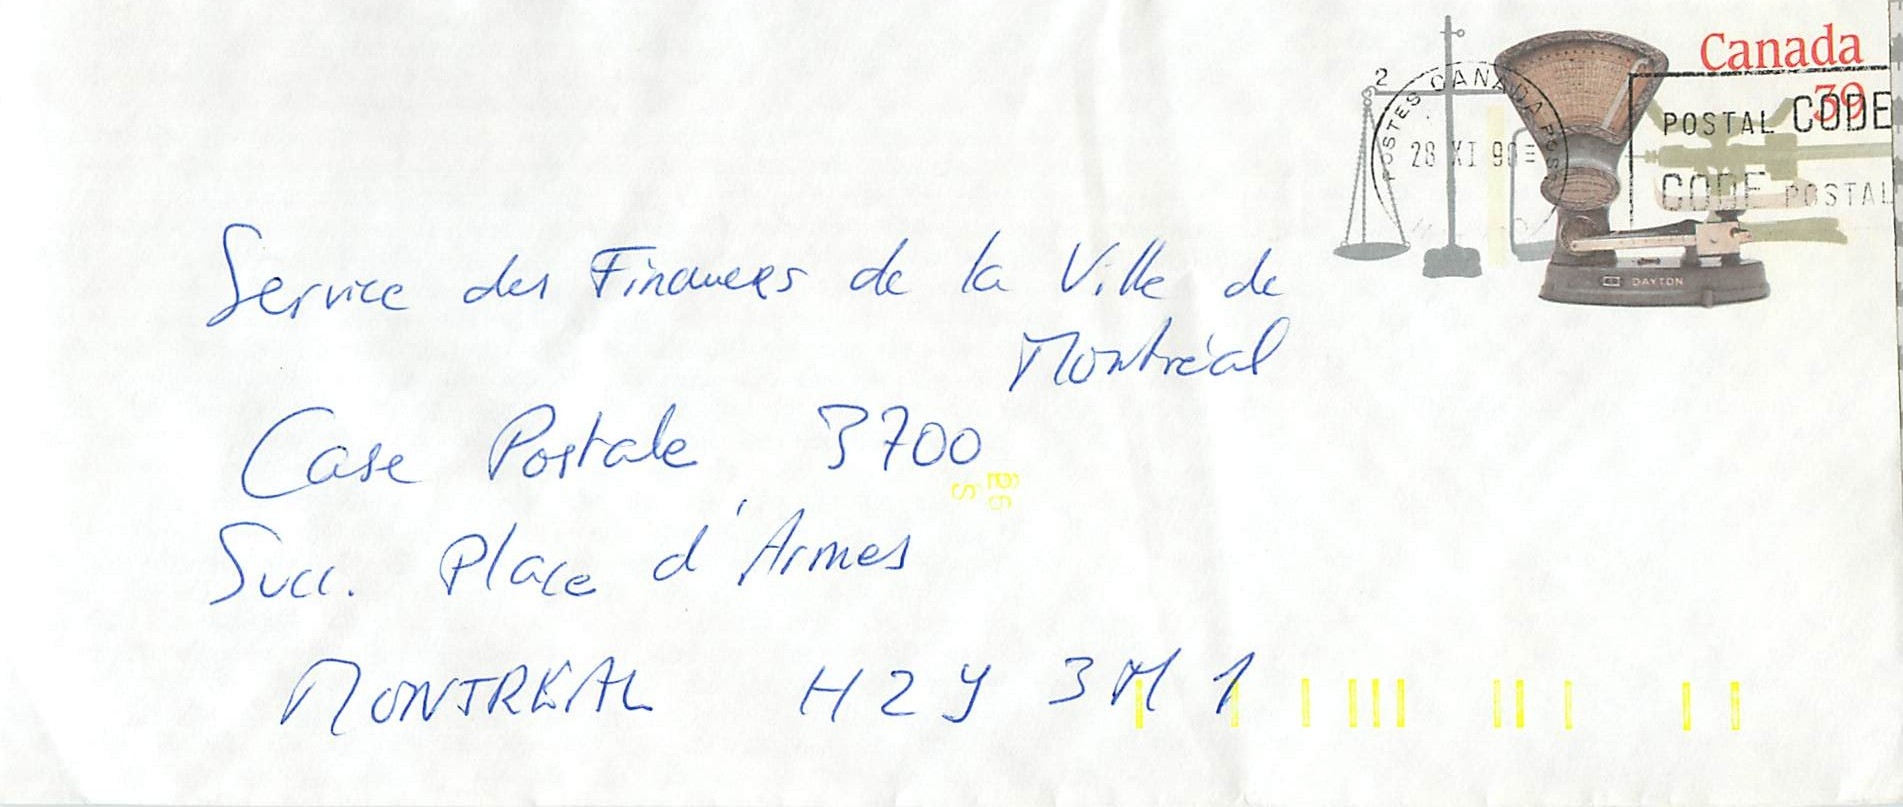 Canada
39
2
POSTES CANADA POST
28 XI 90
POSTAL CODE
CODE POSTAL
DAYTON
Service des Finances de la Ville de
Montréal
Case Postale 3700
Succ. Place d'Armes
MONTRÉAL H2Y 3M1